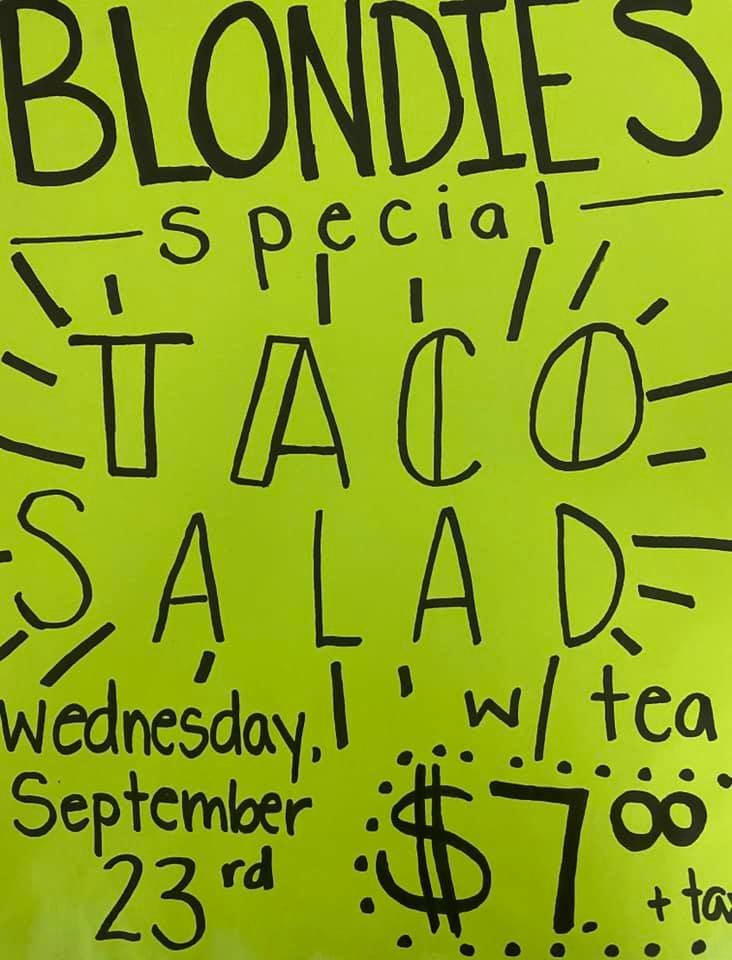 BLONDIES
special
TACO
SALAD
w/ tea
Wednesday,
September
23rd
$7.00
+ tax